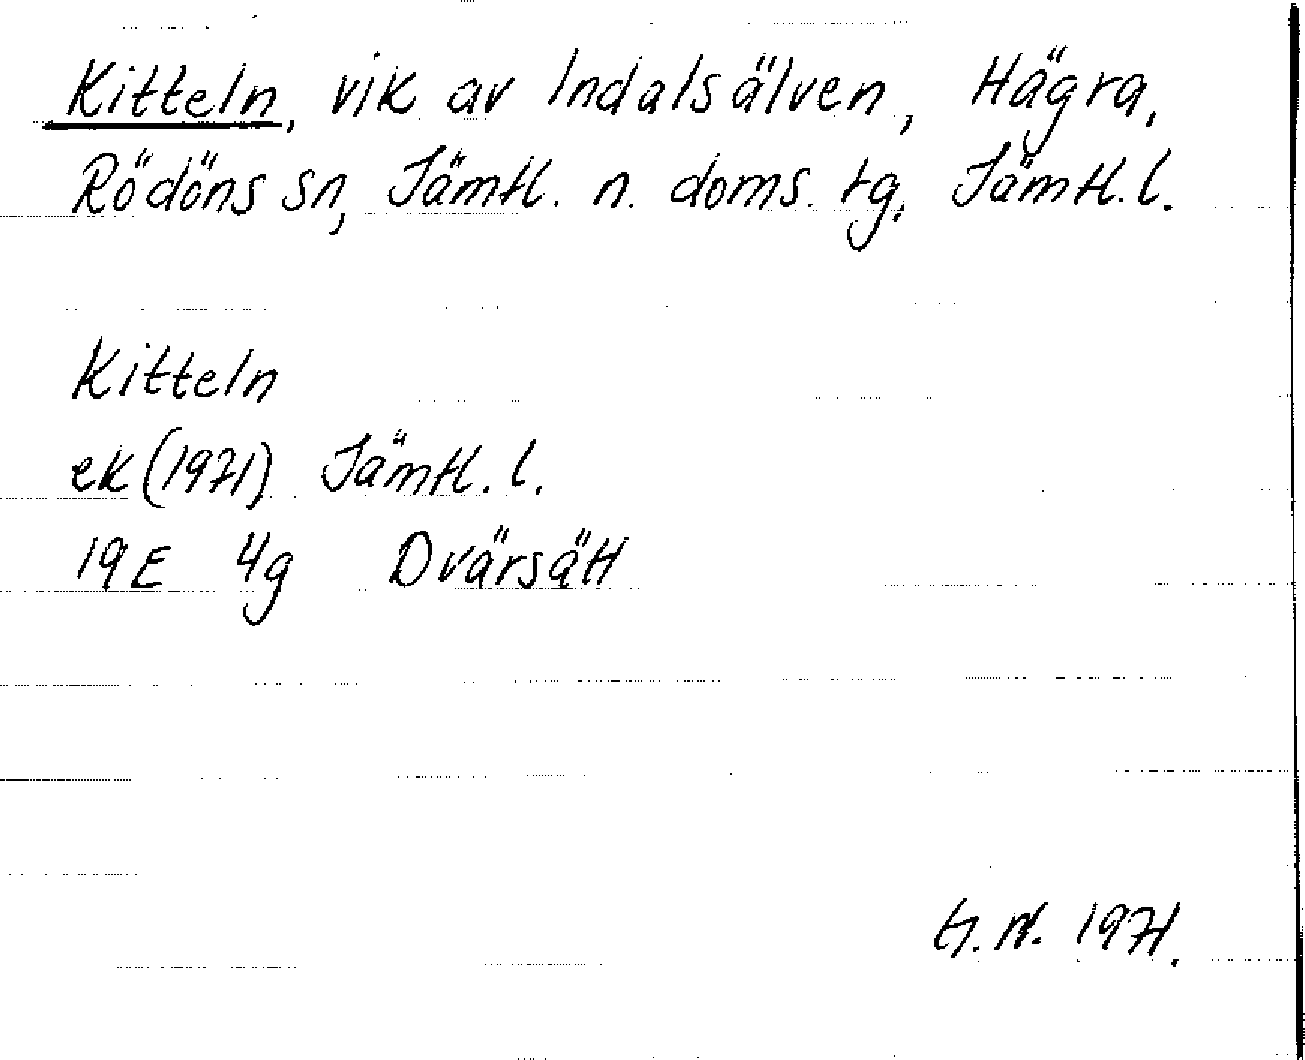 Kitteln, vik av Indalsälven, Hägra,
Rödöns sn, Jämtl. n. doms. tg, Jämtl. l.
Kitteln
ek (1971) Jämtl. l.
19E 4g Dvärsätt
G. N. 1971.